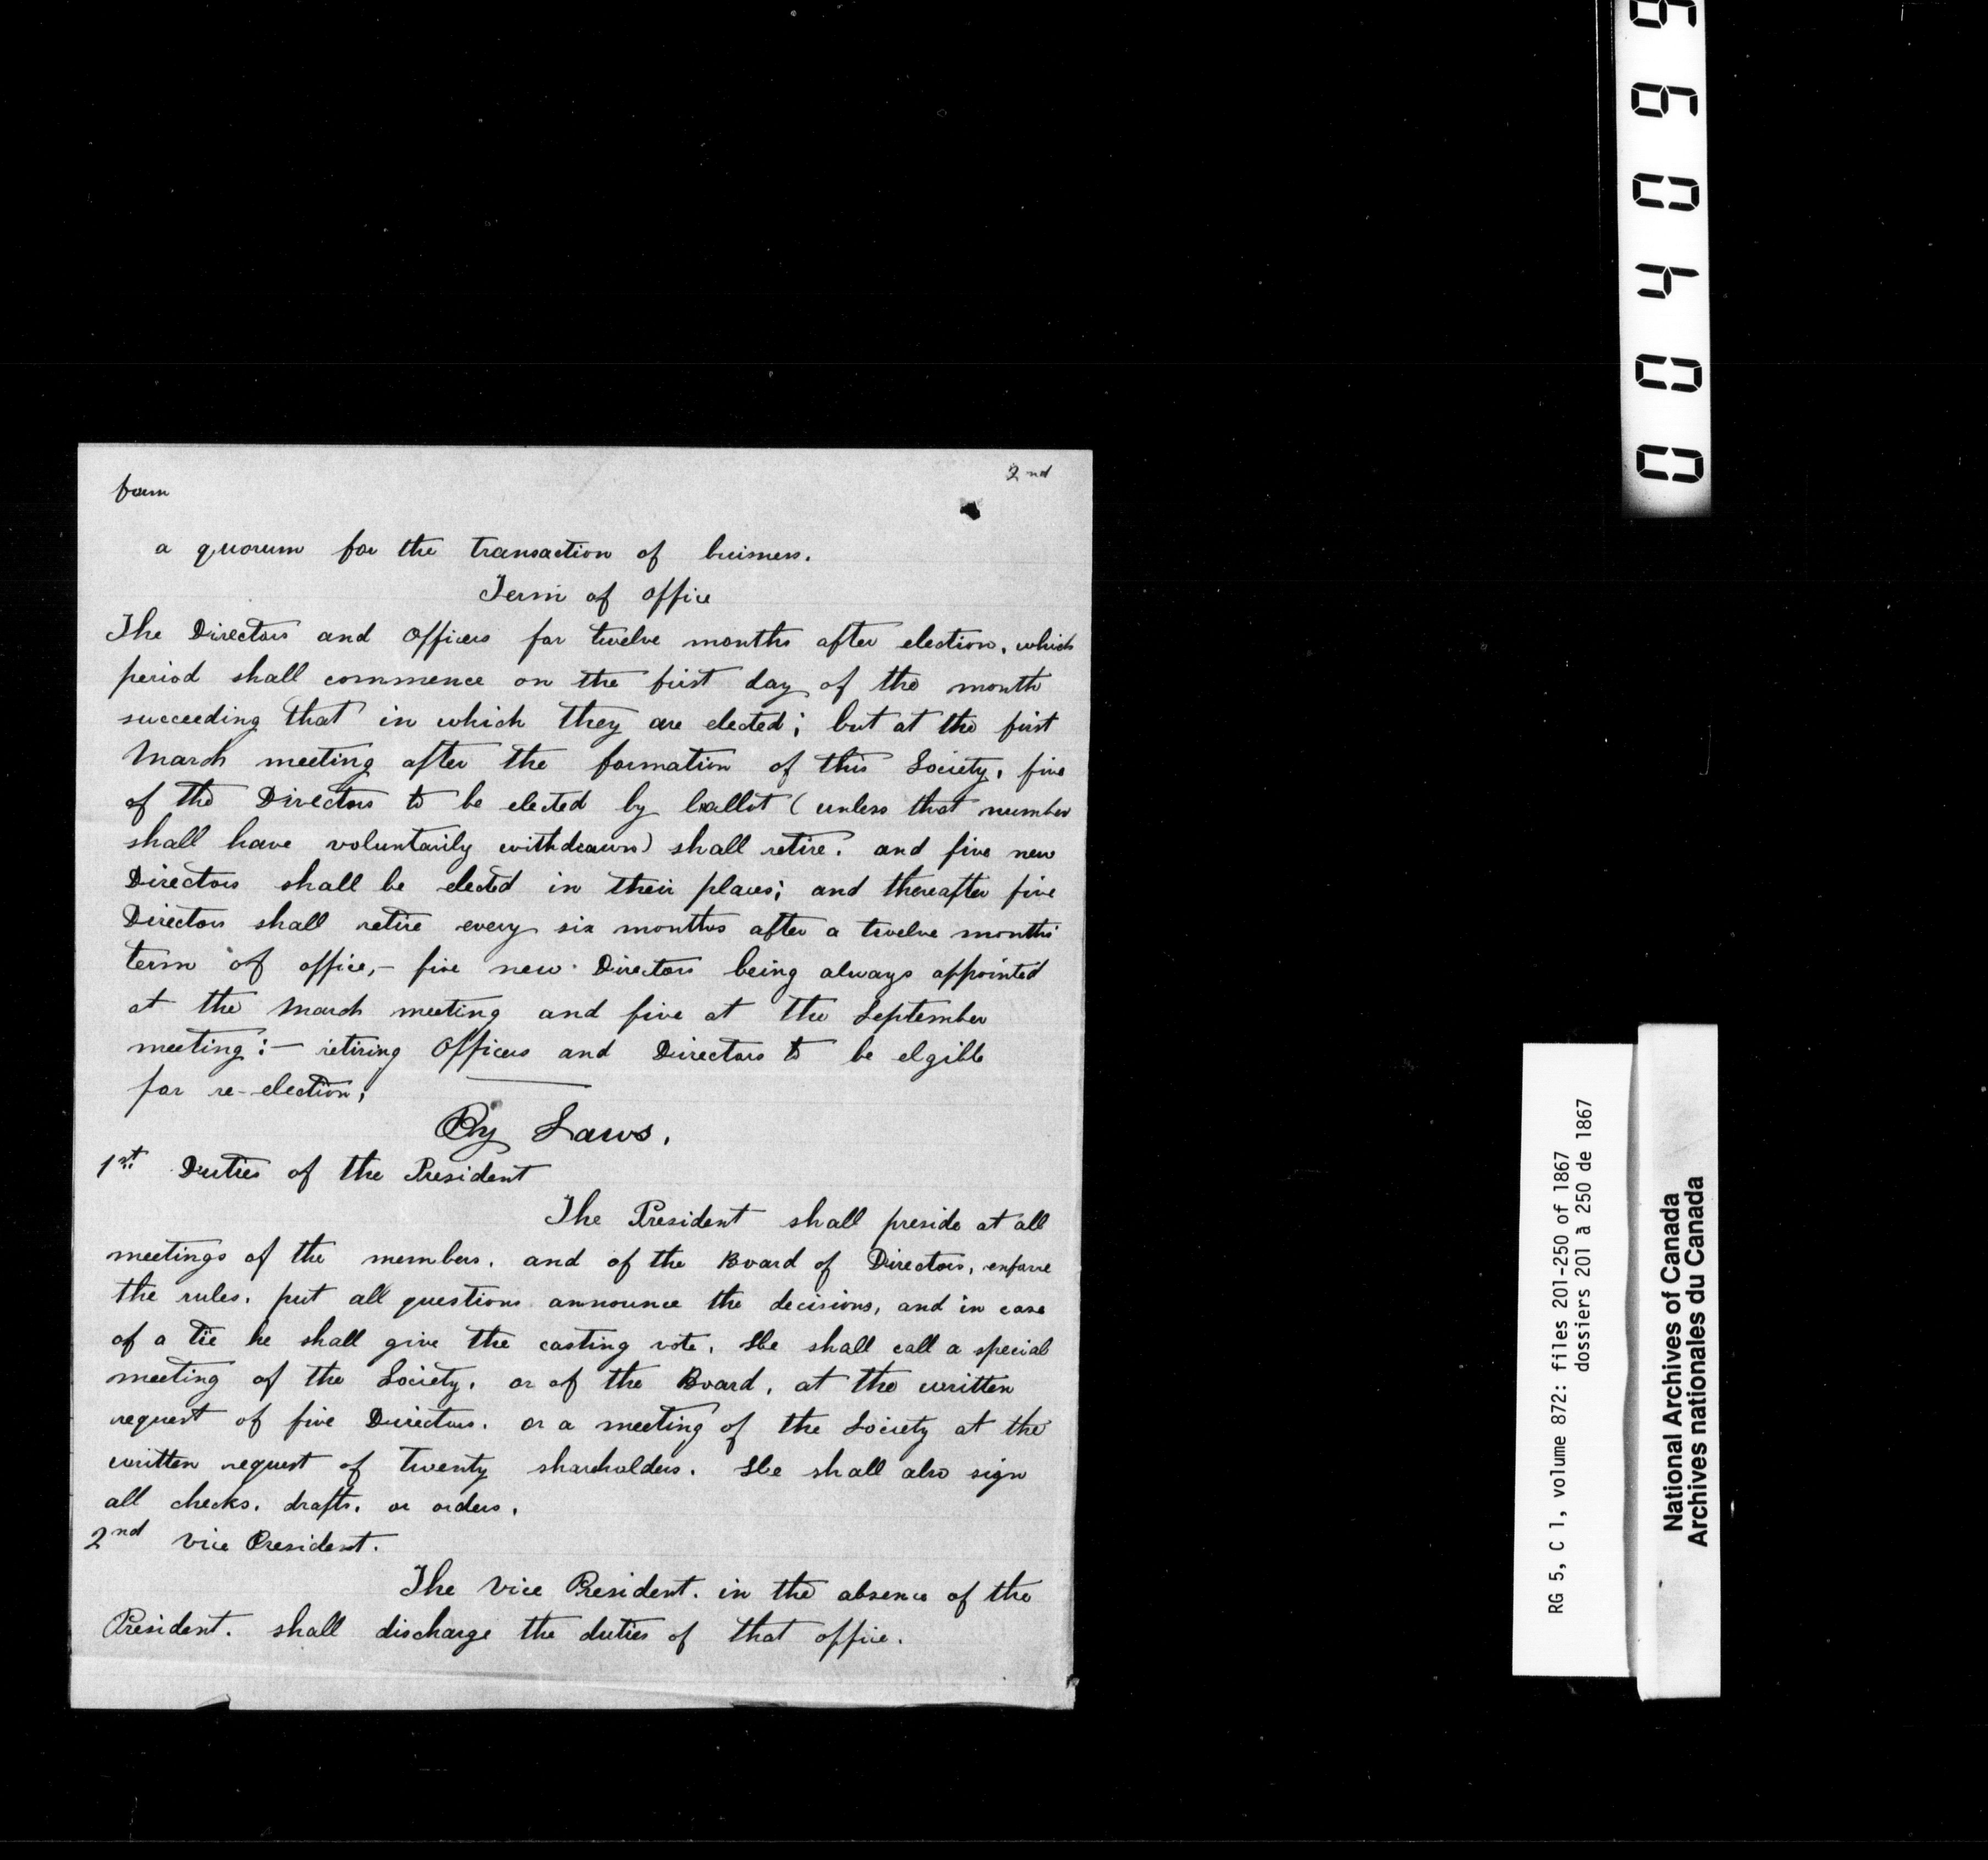 2nd
form
a quorum for the transaction of buisness.
Term of office
The Directors and Officers for twelve months after election, which
period shall commence on the first day of the month
succeeding that in which they are elected; but at the first
March meeting after the formation of this Society, five
of the Directors to be elected by ballot (unless that number
shall have voluntarily withdrawn) shall retire. and five new
Directors shall be elected in their places; and thereafter five
Directors shall retire every six months after a twelve months
term of office,- five new Directors being always appointed
at the March meeting and five at the September
meeting:- retiring Officers and Directors to be elgible
for re-election;
By Laws.
1st Duties of the President
The President shall preside at all
meetings of the members. and of the Board of Directors, enforce
the rules. put all questions announce the decisions, and in case
of a tie he shall give the casting vote. He shall call a special
meeting of the Society. or of the Board, at the written
request of five Directors. or a meeting of the Society at the
written request of twenty shareholders. He shall also sign
all checks. drafts. or orders.
2nd Vice President.
The Vice President. in the absence of the
President. shall discharge the duties of that office.
RG 5, C 1, volume 872: files 201-250 of 1867
dossiers 201 à 250 de 1867
National Archives of Canada
Archives nationales du Canada